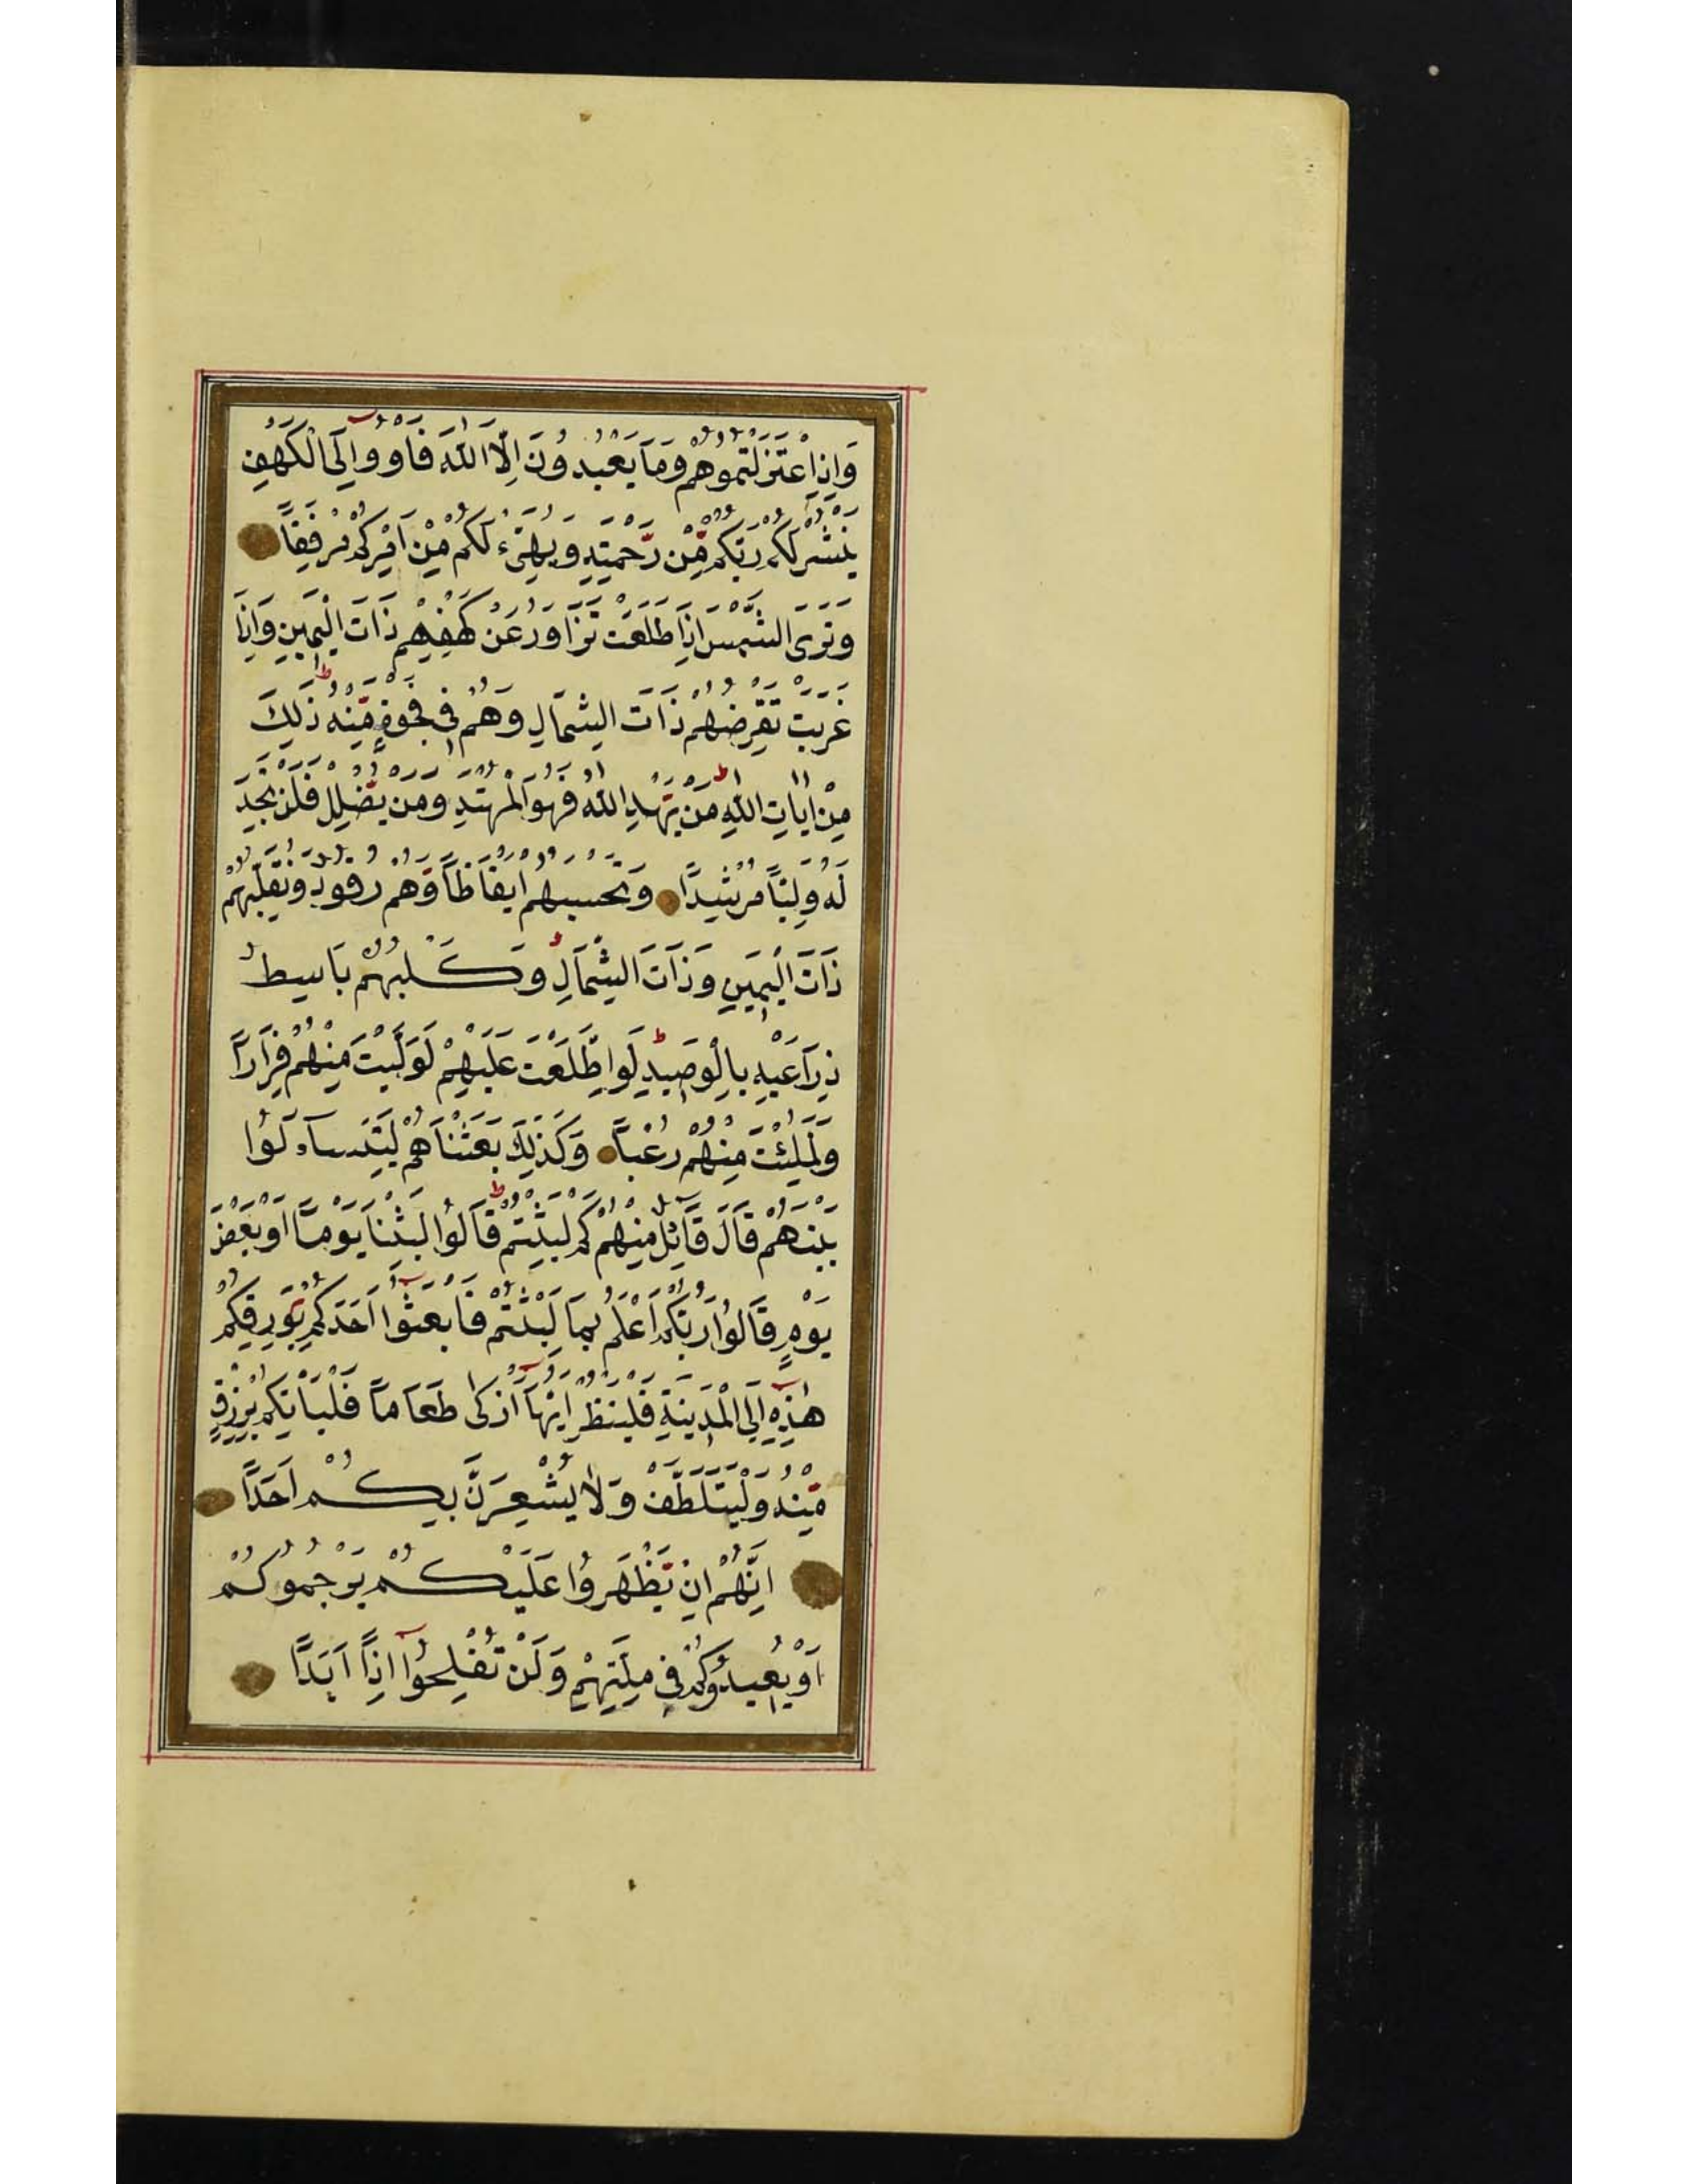 وَاِذِ اعْتَزَلْتُمُوهُمْ وَمَا يَعْبُدُونَ اِلَّا اللّٰهَ فَاْوُوا اِلَى الْكَهْفِ
يَنْشُرْ لَكُمْ رَبُّكُمْ مِّنْ رَّحْمَتِهِ وَيُهَيِّئْ لَكُمْ مِنْ اَمْرِكُمْ مِرْفَقًا
وَتَرَى الشَّمْسَ اِذَا طَلَعَتْ تَزَاوَرُ عَنْ كَهْفِهِمْ ذَاتَ الْيَمِينِ وَاِذَا
غَرَبَتْ تَقْرِضُهُمْ ذَاتَ الشِّمَالِ وَهُمْ فِي فَجْوَةٍ مِّنْهُ ذٰلِكَ
مِنْ اٰيَاتِ اللّٰهِ مَنْ يَّهْدِ اللّٰهُ فَهُوَ الْمُهْتَدِ وَمَنْ يُّضْلِلْ فَلَنْ تَجِدَ
لَهُ وَلِيًّا مُرْشِدًا وَتَحْسَبُهُمْ اَيْقَاظًا وَّهُمْ رُقُودٌ وَنُقَلِّبُهُمْ
ذَاتَ الْيَمِينِ وَذَاتَ الشِّمَالِ وَكَلْبُهُمْ بَاسِطٌ
ذِرَاعَيْهِ بِالْوَصِيدِ لَوِ اطَّلَعْتَ عَلَيْهِمْ لَوَلَّيْتَ مِنْهُمْ فِرَارًا
وَلَمُلِئْتَ مِنْهُمْ رُعْبًا وَكَذٰلِكَ بَعَثْنَاهُمْ لِيَتَسَاءَلُوا
بَيْنَهُمْ قَالَ قَآئِلٌ مِنْهُمْ كَمْ لَبِثْتُمْ قَالُوا لَبِثْنَا يَوْمًا اَوْ بَعْضَ
يَوْمٍ قَالُوا رَبُّكُمْ اَعْلَمُ بِمَا لَبِثْتُمْ فَابْعَثُوا اَحَدَكُمْ بِوَرِقِكُمْ
هٰذِهِ اِلَى الْمَدِينَةِ فَلْيَنْظُرْ اَيُّهَا اَزْكٰى طَعَامًا فَلْيَاْتِكُمْ بِرِزْقٍ
مِّنْهُ وَلْيَتَلَطَّفْ وَلَا يُشْعِرَنَّ بِكُمْ اَحَدًا
اِنَّهُمْ اِنْ يَّظْهَرُوا عَلَيْكُمْ يَرْجُمُوكُمْ
اَوْ يُعِيدُوكُمْ فِي مِلَّتِهِمْ وَلَنْ تُفْلِحُوا اِذًا اَبَدًا